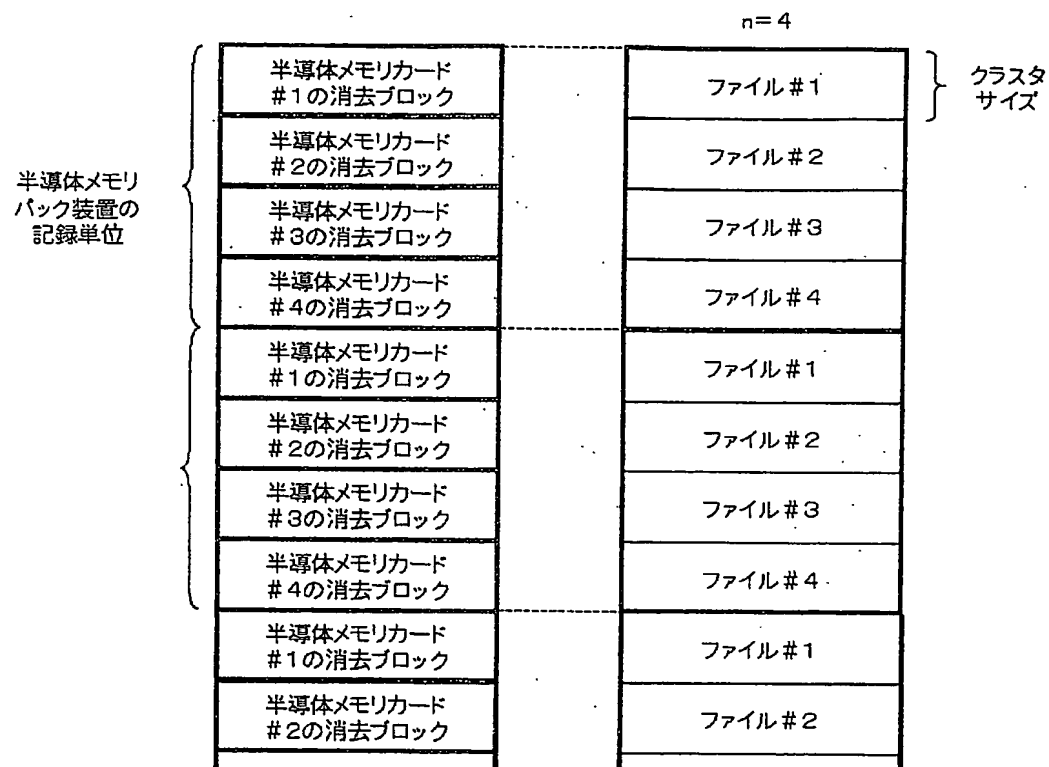 n=4
半導体メモリ
パック装置の
記録単位
半導体メモリカード
#1の消去ブロック
半導体メモリカード
#2の消去ブロック
半導体メモリカード
#3の消去ブロック
半導体メモリカード
#4の消去ブロック
半導体メモリカード
#1の消去ブロック
半導体メモリカード
#2の消去ブロック
半導体メモリカード
#3の消去ブロック
半導体メモリカード
#4の消去ブロック
半導体メモリカード
#1の消去ブロック
半導体メモリカード
#2の消去ブロック
ファイル#1
ファイル#2
ファイル#3
ファイル#4
ファイル#1
ファイル#2
ファイル#3
ファイル#4
ファイル#1
ファイル#2
クラスタ
サイズ